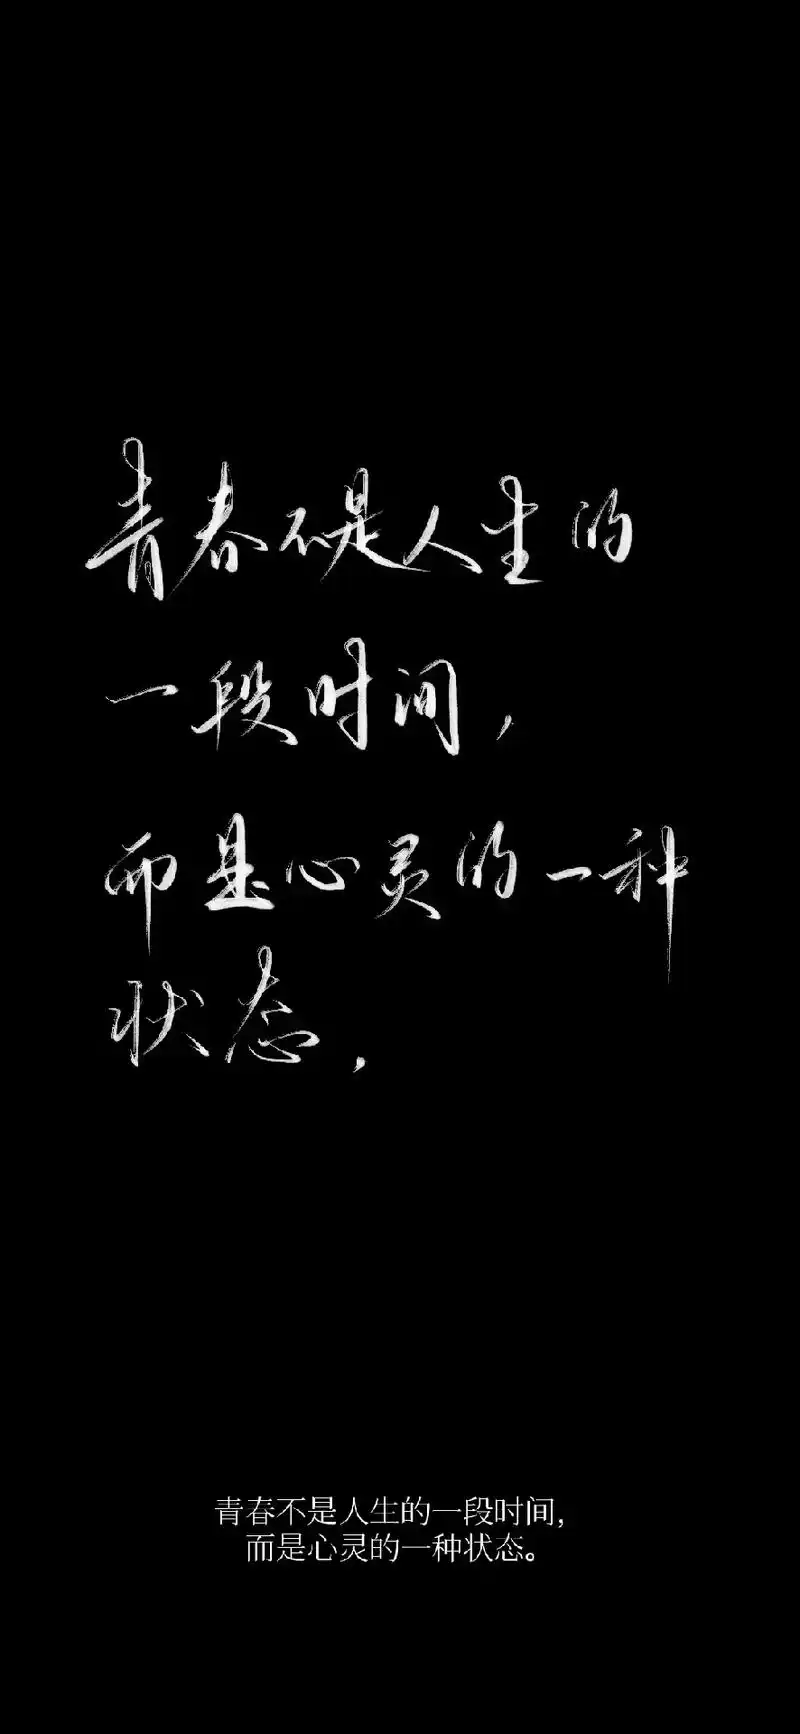 青春不是人生的
一段时间，
而是心灵的一种
状态，
青春不是人生的一段时间，
而是心灵的一种状态。